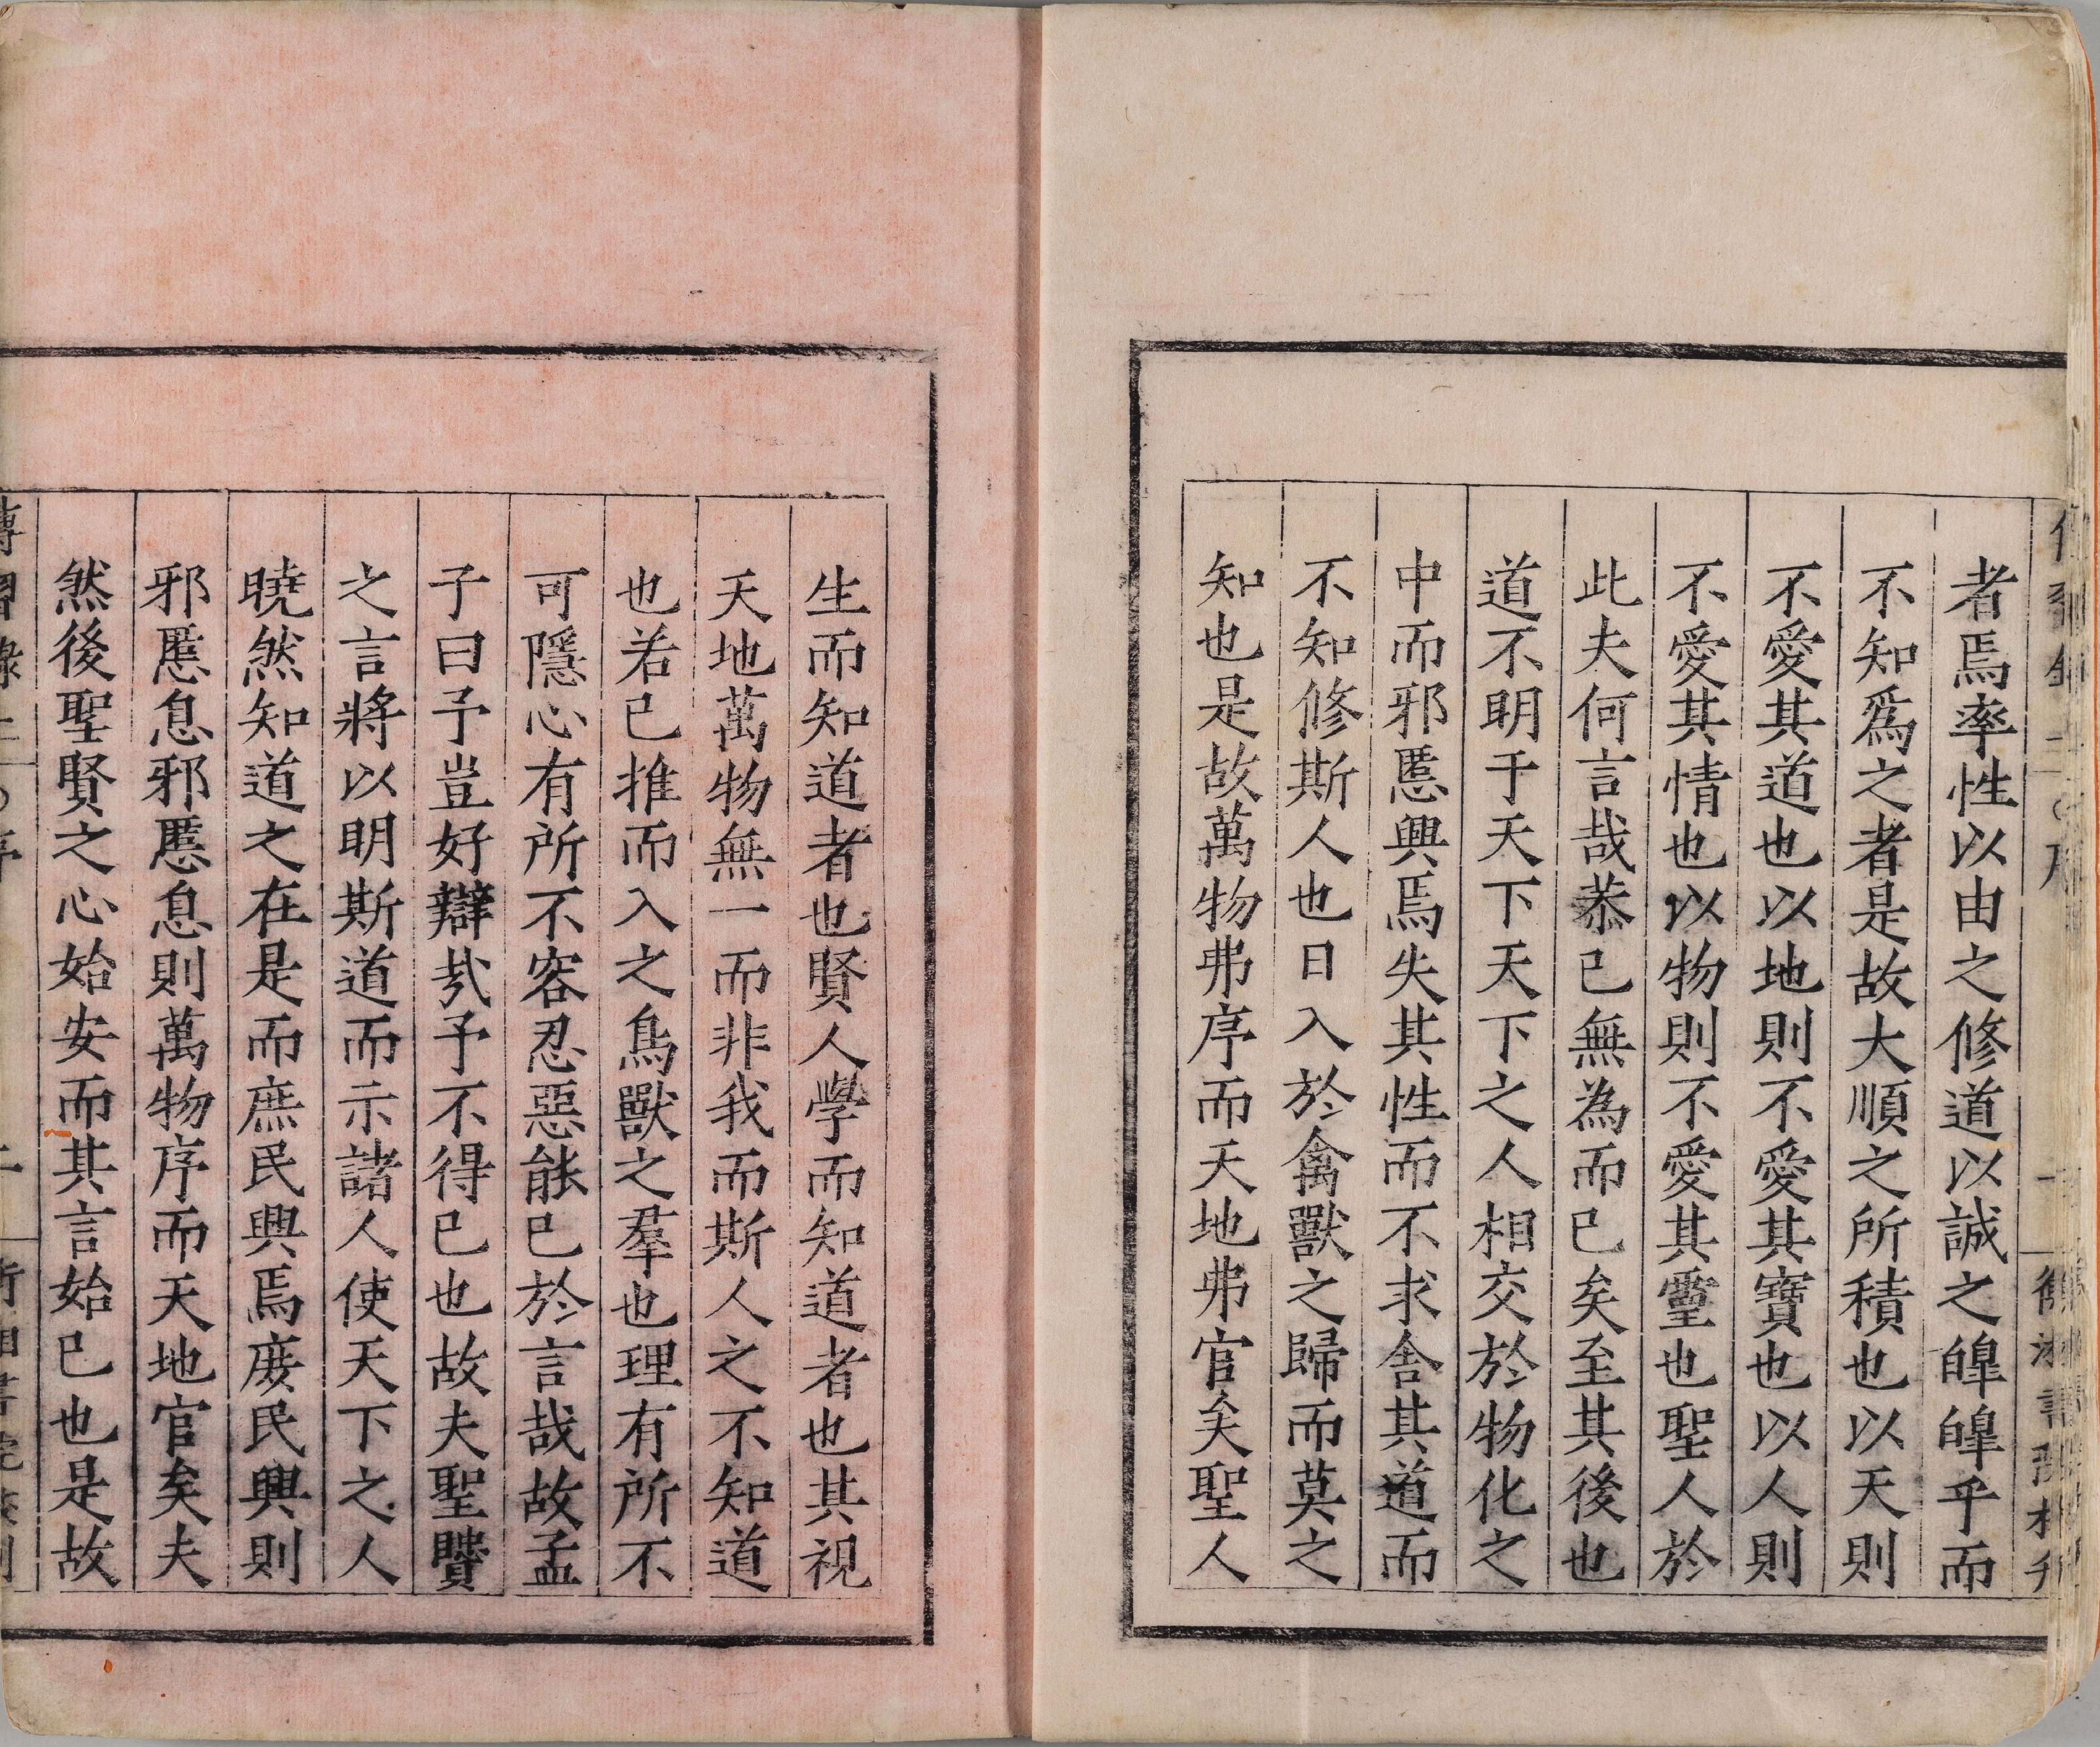 者焉率性以由之修道以誠之皥皥乎而
不知爲之者是故大順之所積也以天則
不愛其道也以地則不愛其寶也以人則
不愛其情也以物則不愛其靈也聖人於
此夫何言哉恭己無為而已矣至其後也
道不明于天下天下之人相交於物化之
中而邪慝興焉失其性而不求舍其道而
不知修斯人也日入於禽獸之歸而莫之
知也是故萬物弗序而天地弗官矣聖人
生而知道者也賢人學而知道者也其視
天地萬物無一而非我而斯人之不知道
也若已推而入之鳥獸之羣也理有所不
可隱心有所不容忍惡能已於言哉故孟
子曰予豈好辯㢤予不得已也故夫聖賢
之言將以明斯道而示諸人使天下之人
曉然知道之在是而庶民興焉庶民興則
邪慝息邪慝息則萬物序而天地官矣夫
然後聖賢之心始安而其言始已也是故
傳習錄上〇序